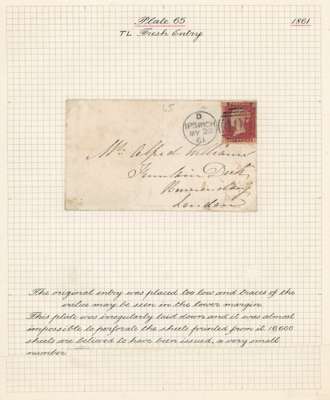 Plate 65
1861
TL Fresh Entry
L5
D
IPSWICH
MY 22
61
Mr. Alfred Williams
Fountain Dock
London
The original entry was placed too low and traces of the
value may be seen in the lower margin.
This plate was irregularly laid down and it was almost
impossible to perforate the sheets printed from it. 16,600
sheets are believed to have been issued, a very small
number.